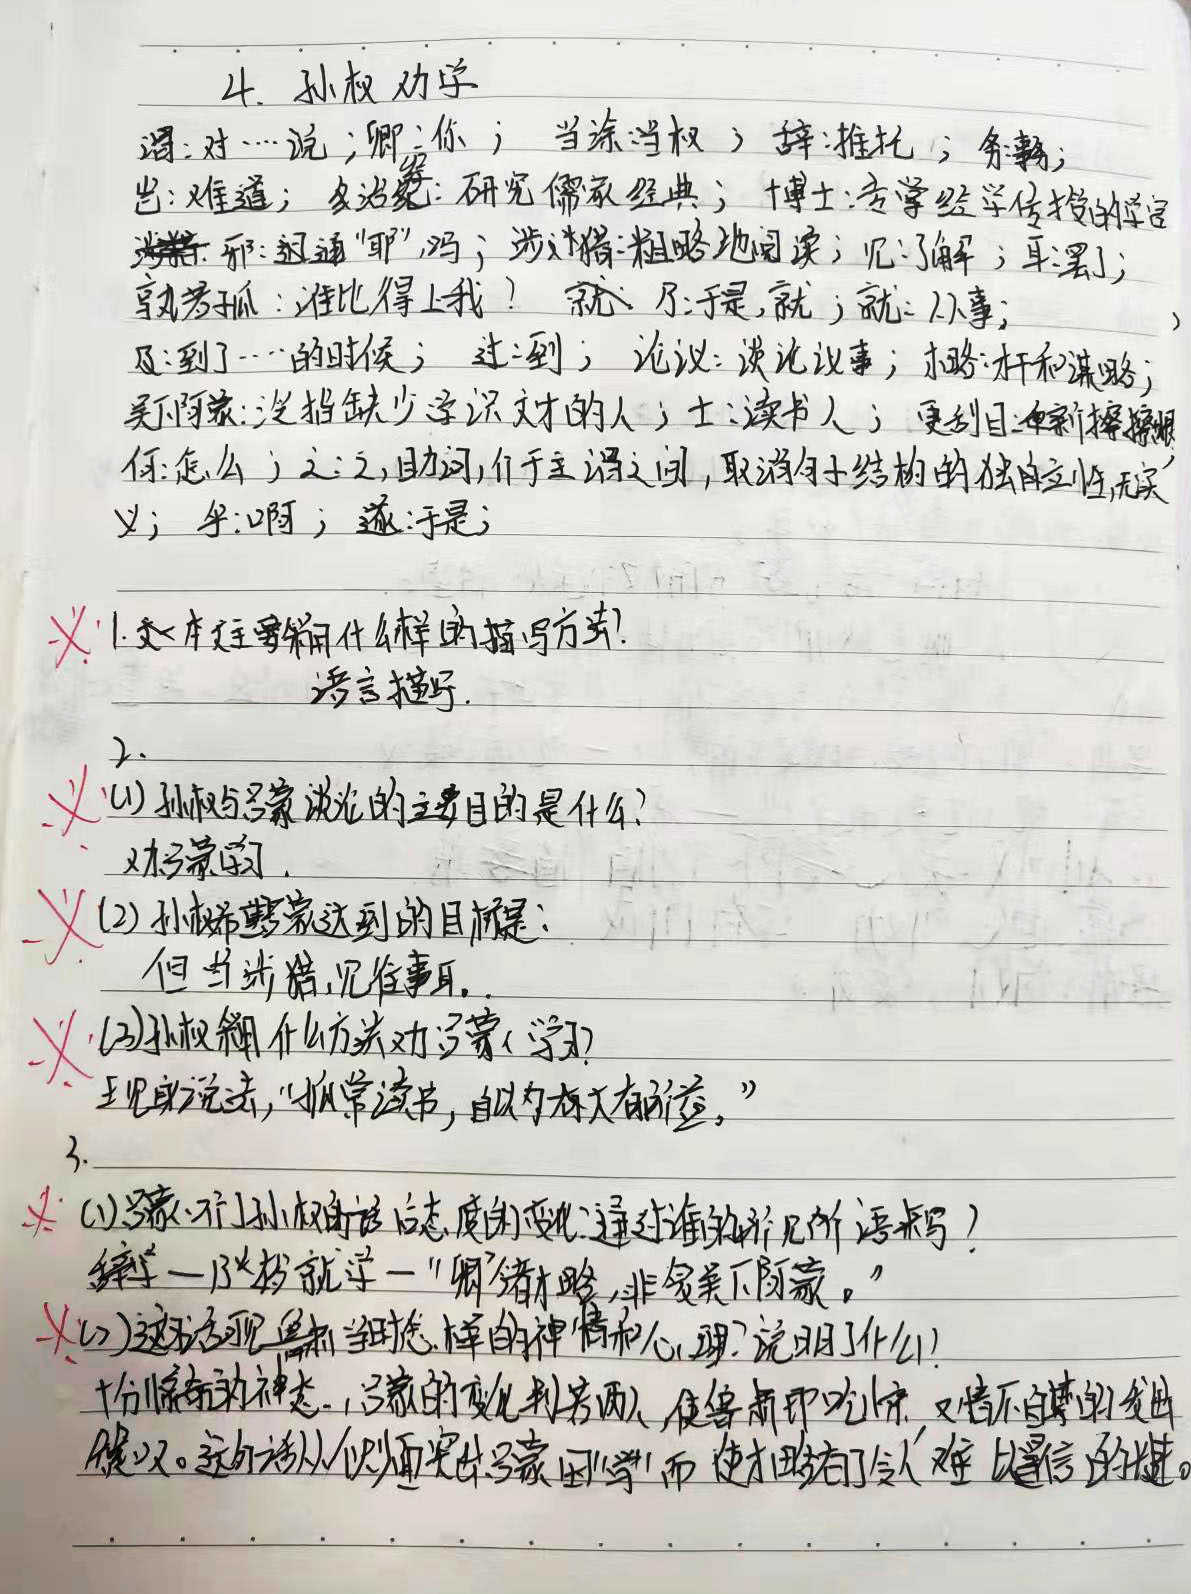 4. 孙权劝学
谓:对……说;卿:你; 当涂:当权; 辞:推托; 务:事务;
岂:难道; 治经:研究儒家经典; 博士:专掌经学传授的学官
邪:通“耶”,吗; 涉猎:粗略地阅读; 见:了解; 耳:罢了;
孰若孤:谁比得上我? 就: 乃:于是,就; 就:从事;
及:到了……的时候; 过:到; 论议:谈论议事; 才略:才干和谋略;
吴下阿蒙:没指缺少学识文才的人; 士:读书人; 更刮目:重新擦擦眼
何:怎么; 之:助词,介于主谓之间,取消句子结构的独立性,无实
义; 乎:啊; 遂:于是;
1. 本文主要采用什么样的描写方法?
语言描写.
2.
(1) 孙权与吕蒙谈论的主要目的是什么?
劝吕蒙学习.
(2) 孙权希望吕蒙达到的目标是:
但当涉猎,见往事耳。
(3) 孙权采用什么方法劝吕蒙学习?
现身说法,“孤常读书,自以为大有所益。”
3.
(1) 吕蒙听了孙权的话后态度的变化:通过谁的所见所语来写?
辞学—乃始就学—“卿今者才略,非复吴下阿蒙。”
(2) 这句话可见鲁肃当时怎样的神情和心理?说明了什么?
十分惊奇的神态,吕蒙的变化判若两人,使鲁肃即吃惊,又情不自禁的发出
建议。这句话从侧面突出吕蒙因“学”而使才略有了令人难以置信的增进。